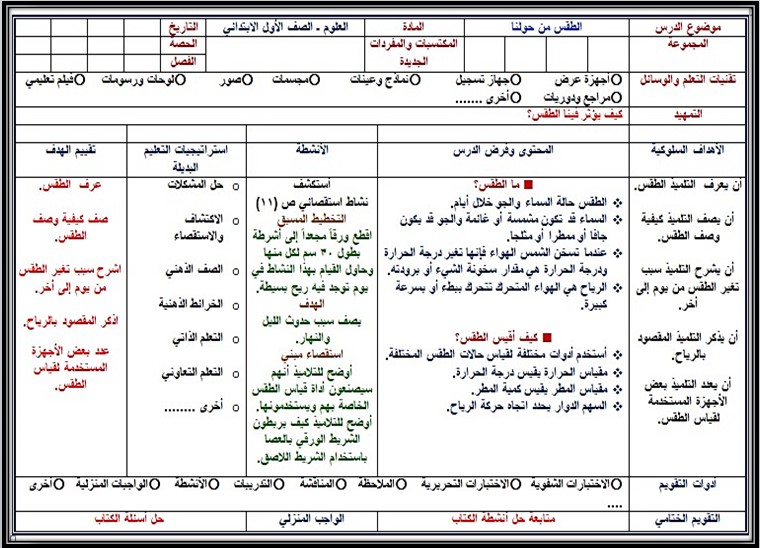 موضوع الدرس الطقس من حولنا المادة العلوم - الصف الأول الابتدائي التاريخ
المجموعة المكتسبات والمفردات الجديدة الحصة
الفصل
تقنيات التعلم والوسائل أجهزة عرض جهاز تسجيل نماذج وعينات مجسمات صور لوحات ورسومات فيلم تعليمي
مراجع ودوريات أخرى .......
التمهيد كيف يؤثر فينا الطقس؟
الأهداف السلوكية المحتوى وفرض الدرس الأنشطة استراتيجيات التعليم البديلة تقييم الهدف
أن يعرف التلميذ الطقس.
أن يصف التلميذ كيفية
وصف الطقس.
أن يشرح التلميذ سبب
تغير الطقس من يوم إلى
أخر.
أن يذكر التلميذ المقصود
بالرياح.
أن يعدد التلميذ بعض
الأجهزة المستخدمة
لقياس الطقس.
ما الطقس؟
الطقس حالة السماء والجو خلال أيام.
السماء قد تكون مشمسة أو غائمة والجو قد يكون
جافا أو ممطرا أو مثلجا.
عندما تسخن الشمس الهواء فإنها تغير درجة الحرارة
ودرجة الحرارة هي مقدار سخونة الشيء أو برودته.
الرياح هي الهواء المتحرك تتحرك ببطء أو بسرعة
كبيرة.
كيف أقيس الطقس؟
أستخدم أدوات مختلفة لقياس حالات الطقس المختلفة.
مقياس الحرارة يقيس درجة الحرارة.
مقياس المطر يقيس كمية المطر.
السهم الدوار يحدد اتجاه حركة الرياح.
أستكشف
نشاط استقصائي ص (١١)
التخطيط المسبق
اقطع ورقاً مجعداً إلى أشرطة
بطول ٣٠ سم لكل منها
وحاول القيام بهذا النشاط في
يوم توجد فيه ريح بسيطة.
الهدف
يصف سبب حدوث الليل
والنهار.
استقصاء مبني
أوضح للتلاميذ أنهم
سيصنعون أداة قياس الطقس
الخاصة بهم ويستخدمونها.
أوضح للتلاميذ كيف يربطون
الشريط الورقي بالعصا
باستخدام الشريط اللاصق.
حل المشكلات
الاكتشاف
والاستقصاء
الصف الذهني
الخرائط الذهنية
التعلم الذاتي
التعلم التعاوني
أخرى ........
عرف الطقس.
صف كيفية وصف
الطقس.
اشرح سبب تغير الطقس
من يوم إلى أخر.
اذكر المقصود بالرياح.
عدد بعض الأجهزة
المستخدمة لقياس
الطقس.
أدوات التقويم الاختبارات الشفوية الاختبارات التحريرية الملاحظة المناقشة التدريبات الأنشطة الواجبات المنزلية أخرى
....
التقويم الختامي متابعة حل أنشطة الكتاب الواجب المنزلي حل اسئلة الكتاب